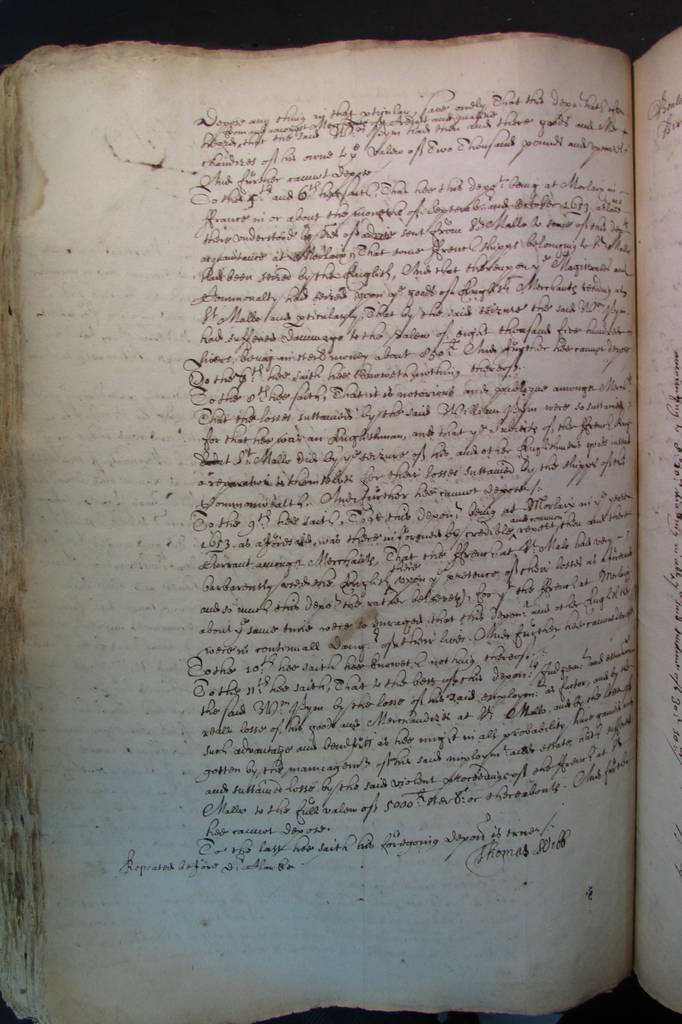 Depose any thing in that pticular, save onely That this depo.t hath often
from and amongst Merchants of Credit and qualitie
heard, that the said W.m Pym had then and there goods and Mer
chandizes of his owne to y.e valew of Two Thousand pounds and
And further cannot depose
To the 5.th and 6.th hee saith, That hee this depo.t being at Morlaix in
France in or about the moneths of September and October 1653
there understood by
acquaintance at Morlaix, That some French shipps belonging to S.t Mallo
had been seized by the English, And that thereupon y.e Magistrates and
Commonalty had seized upon y.e goods of English Merchants residing at
S.t Mallo and pticularly, That by the said seizure the said W.m Pym
had suffered Dammage to the valew of eight thousand five hundred
livers, being in sterl money about 850.li And further hee cannot depose
To the 7.th hee saith hee knoweth nothing thereof.
To the 8.th hee saith, That it is notorious and publique amongst Merch.ts
That the losses sustained by the said William Pym were so sustained
for that hee was an Englishman, and that y.e subjects of the French King
at S.t Mallo did by y.e seizure of his and other Englishmens goods
a reparation to themselves for their losses sustained by the shipps of this
Commonwealth. And further hee cannot depose.
To the 9.th hee saith, That this depon.t being at Morlaix in y.e yeare
and comon
1653 as aforesaid, was there informed by credible report, then and there
Currant amongst Merchants, That the French at S.t Malo had very
there
barbarously used the English upon y.e pretence of their losses as
and so much this depo.t the rather beleeveth, for y.t the French at Morlaix
about y.e same time were so enraged that this depon.t and other English
were in continuall Dang.r of their lives. And further hee cannot depose
To the 10.th hee saith hee knoweth nothing thereof.
To the 11.th hee saith, That to the best of this depon.ts Judgem.t and
the said W.m Pym by the losse of his said employm.t as factor, and by the
reall losse of his goods and Merchandizes at S.t Mallo, and by the losse of
such advantage and benefitt as hee might in all probability have gained and
gotten by the managem.t of his said imploym.t and estate, hath suffered
and sustained losse by the said violent proceedings of the French at S.t
Mallo to the full valew of 5000.li ster.l or thereabouts. And further
hee cannot depose.
To the last hee saith his foregoing depon.t is true.
Thomas Webb
Repeated before D.r Clarke